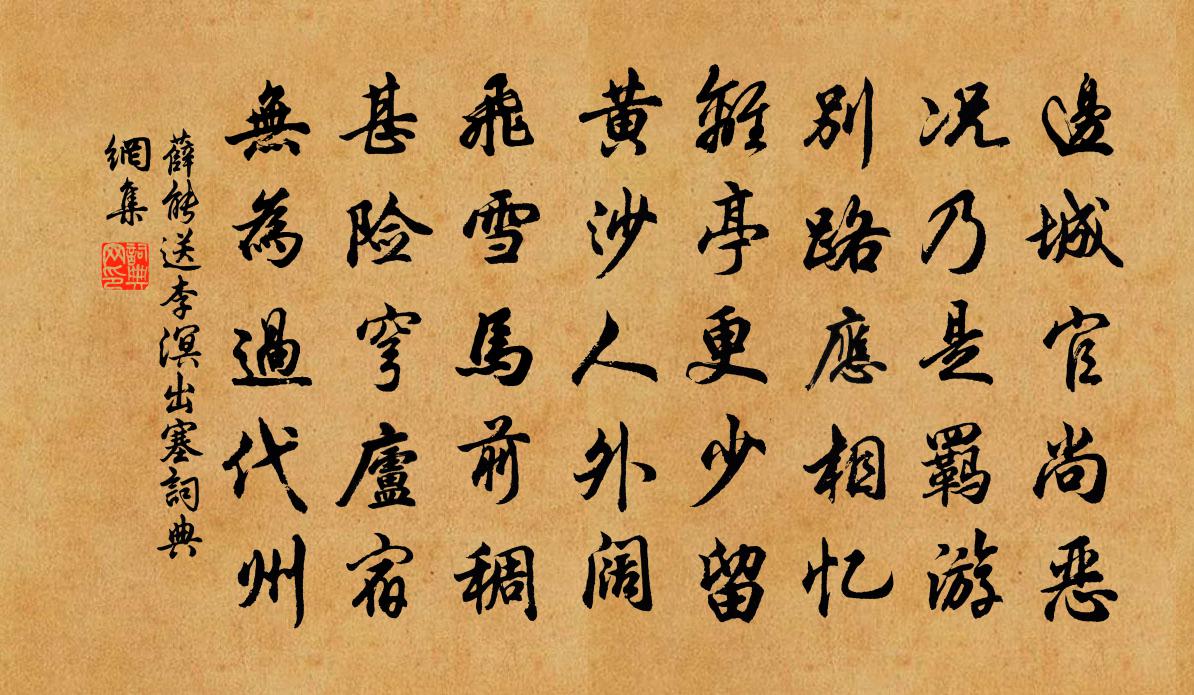 邊城官尚惡
况乃是羈游
別路應相忆
離亭更少留
黄沙人外阔
飛雪馬前稠
甚险穹廬宿
無為過代州
薛能送李溟出塞詞典
網集
詞典
网印